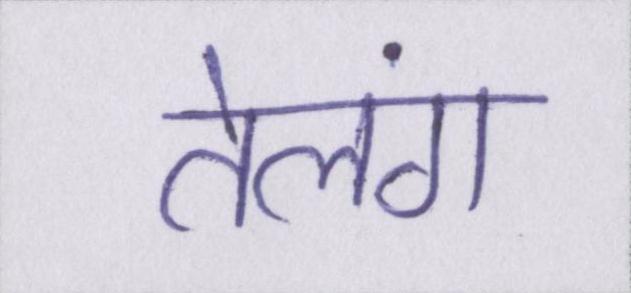 तेलंग